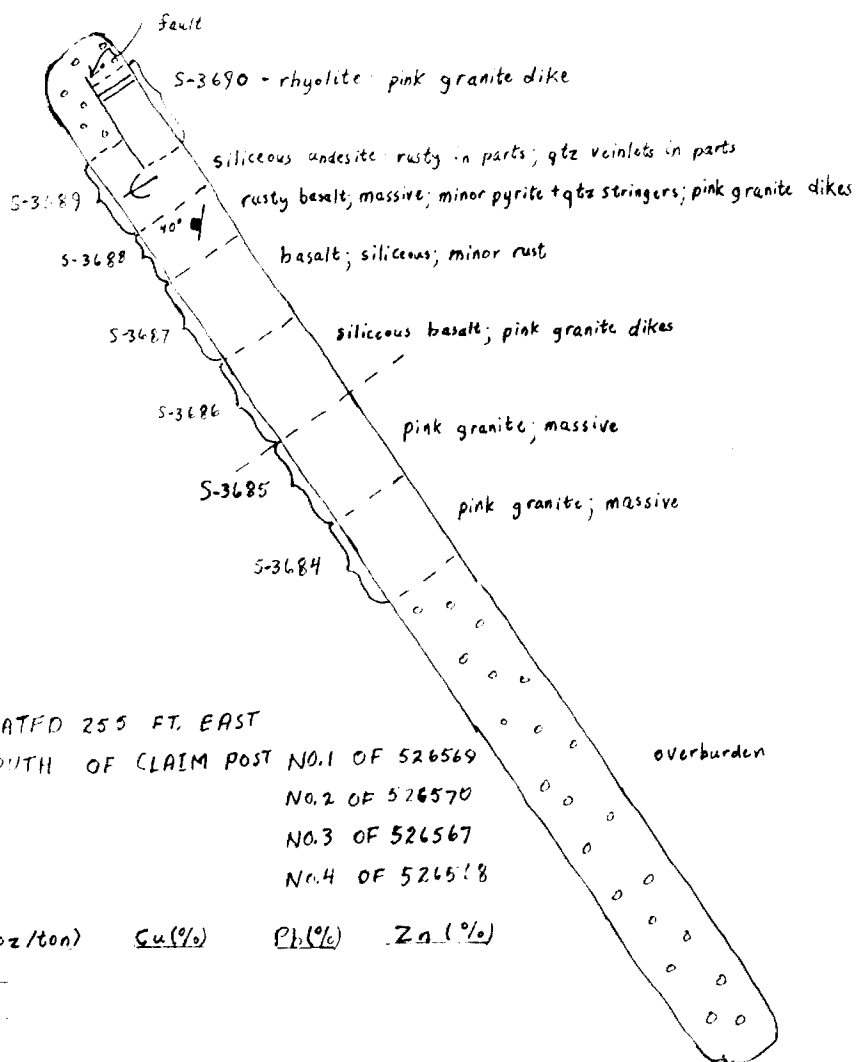 fault
S-3690 - rhyolite pink granite dike
siliceous andesite rusty in parts; qtz veinlets in parts
S-3689
rusty basalt; massive; minor pyrite + qtz stringers; pink granite dikes
40°
S-3688
basalt; siliceous; minor rust
S-3687
siliceous basalt; pink granite dikes
S-3686
pink granite; massive
S-3685
pink granite; massive
S-3684
ATED 255 FT. EAST
OUTH OF CLAIM POST NO.1 OF 526569
overburden
NO.2 OF 526570
NO.3 OF 526567
No.4 OF
oz/ton) Cu(%) Pb(%) Zn(%)